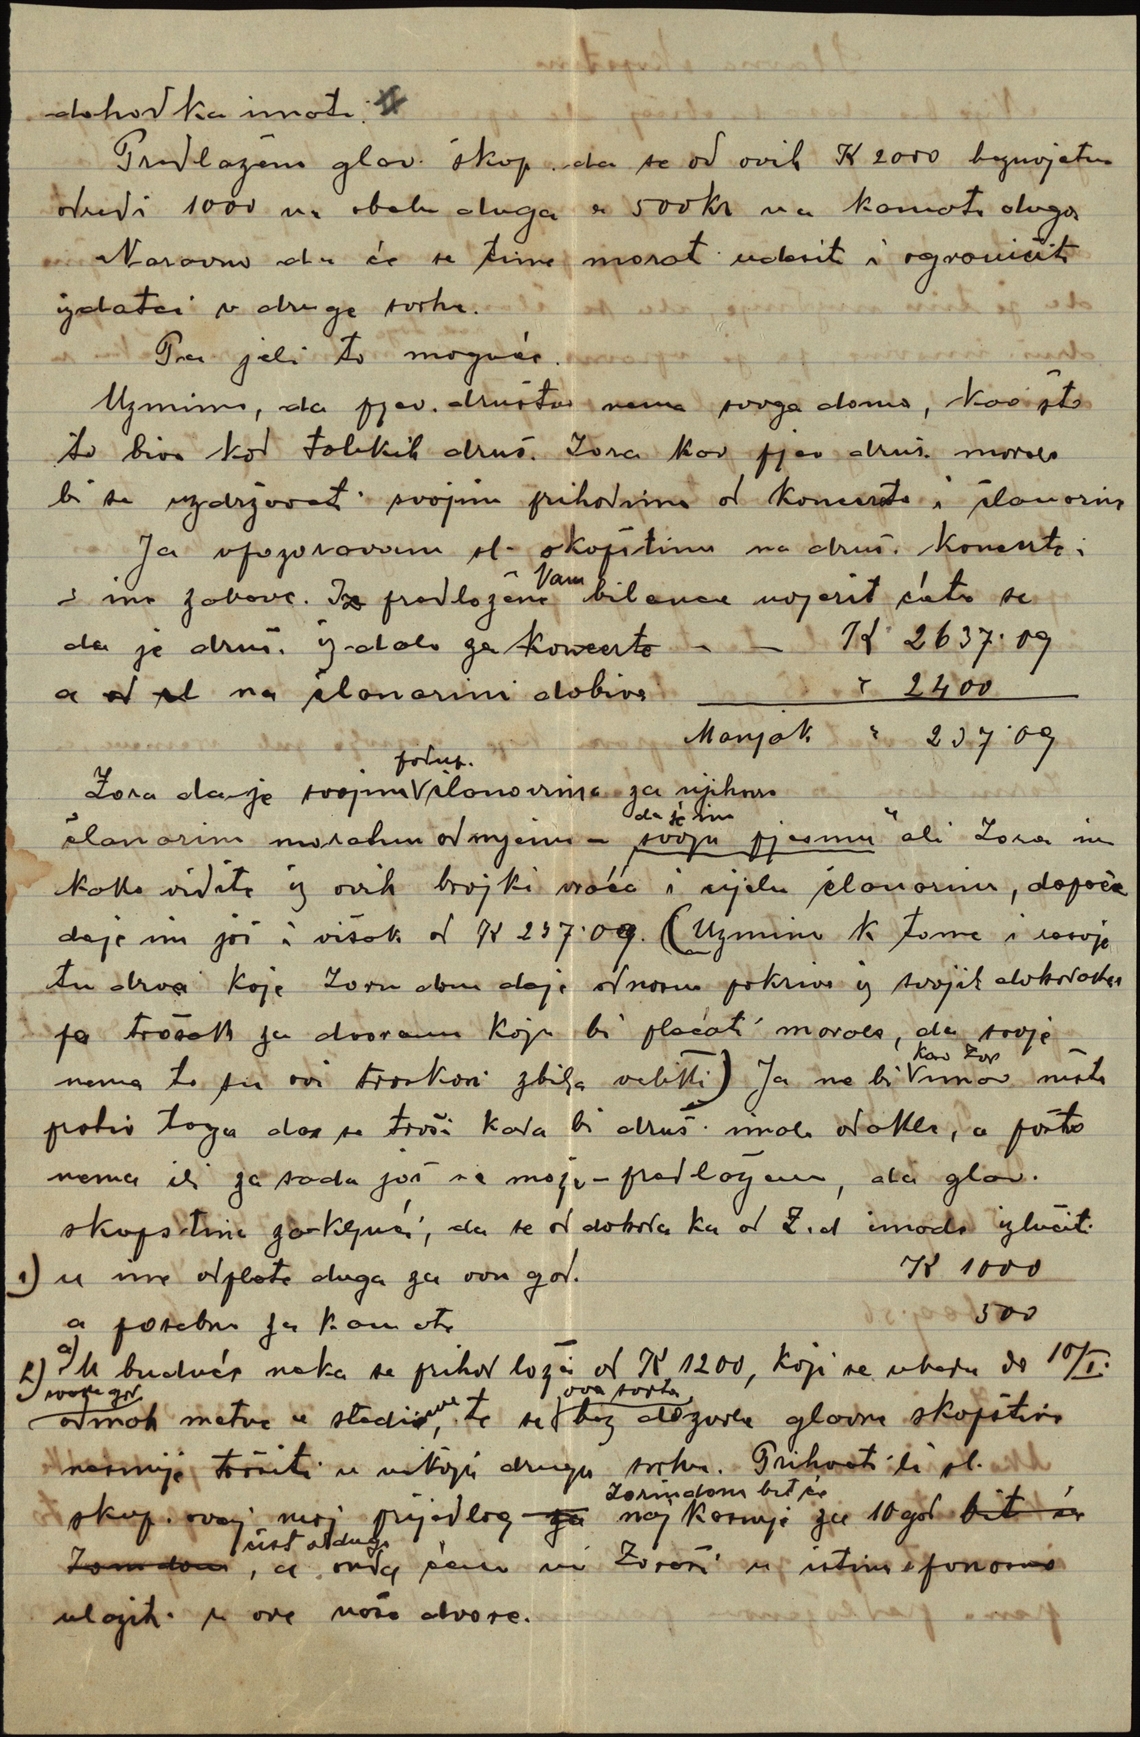 dohodka imati.
Predlažem glav. skup. da se od ovih K 2000 bezuvjetno
odredi 1000 na otplatu duga a 500kr na kamate duga
Naravno da će se time morat udesit i ograničit
izdatci u druge svrhe.
Pa jeli to moguće.
Uzmimo, da pjev. društvo nema svoga doma, kao što
to biva kod tolikih druš. Zora kao pjev druš. morala
bi se uzdržavati svojim prihodima od koncerta i članarine
Ja upozoravam sl. skupštinu na druš. koncerte i
i ine zabave. Iz predložene Vam bilance uvjerit ćete se
da je druš. izdalo za koncerte - - K 2637·09
a od sl na članarini dobiva " 2400
Manjak " 237·09
Zora daje svojim podup. članovima za njihovu
članarinu moralnu odmjenu - da je im svoju pjesmu" ali Zora im
kako vidite iz ovih brojki vraća i cijelu članarinu, dapače
daje im još i višak od K 237·09. (Uzmimo k tome i
tu drva koje Zorin dom daje odnosno pokriva iz svojih dohodaka
pa trošak za dvoranu koju bi plaćati morala, da svoje
nema to su ovi troškovi zbilja veliki) Ja ne bi kao Zor imao ništa
protiv toga da se troši kada bi druš. imalo odakle, a pošto
nema ili za sada još ne može - predlažem, da glav.
skupština zaključi, da se od dohodka od Z.d imade izlučiti
1) u ime odplate duga za ovu god. K 1000
a posebno za kamate 500
2) a) U buduće neka se prihod loza od K 1200, koji se ubere do 10/I.
svake god odmah metne u štedionu, te se ova svota bez dozvole glavne skupštine
nesmije trošiti u nikoju drugu svrhu. Prihvati li sl.
skup. ovaj moj prijedlog za Zorindom bit će najkasnije za 10 god bit će
Zorin dom čist od duga, a onda ćemo mi Zoraši u istinu s ponosom
ulaziti u ove naše dvore.